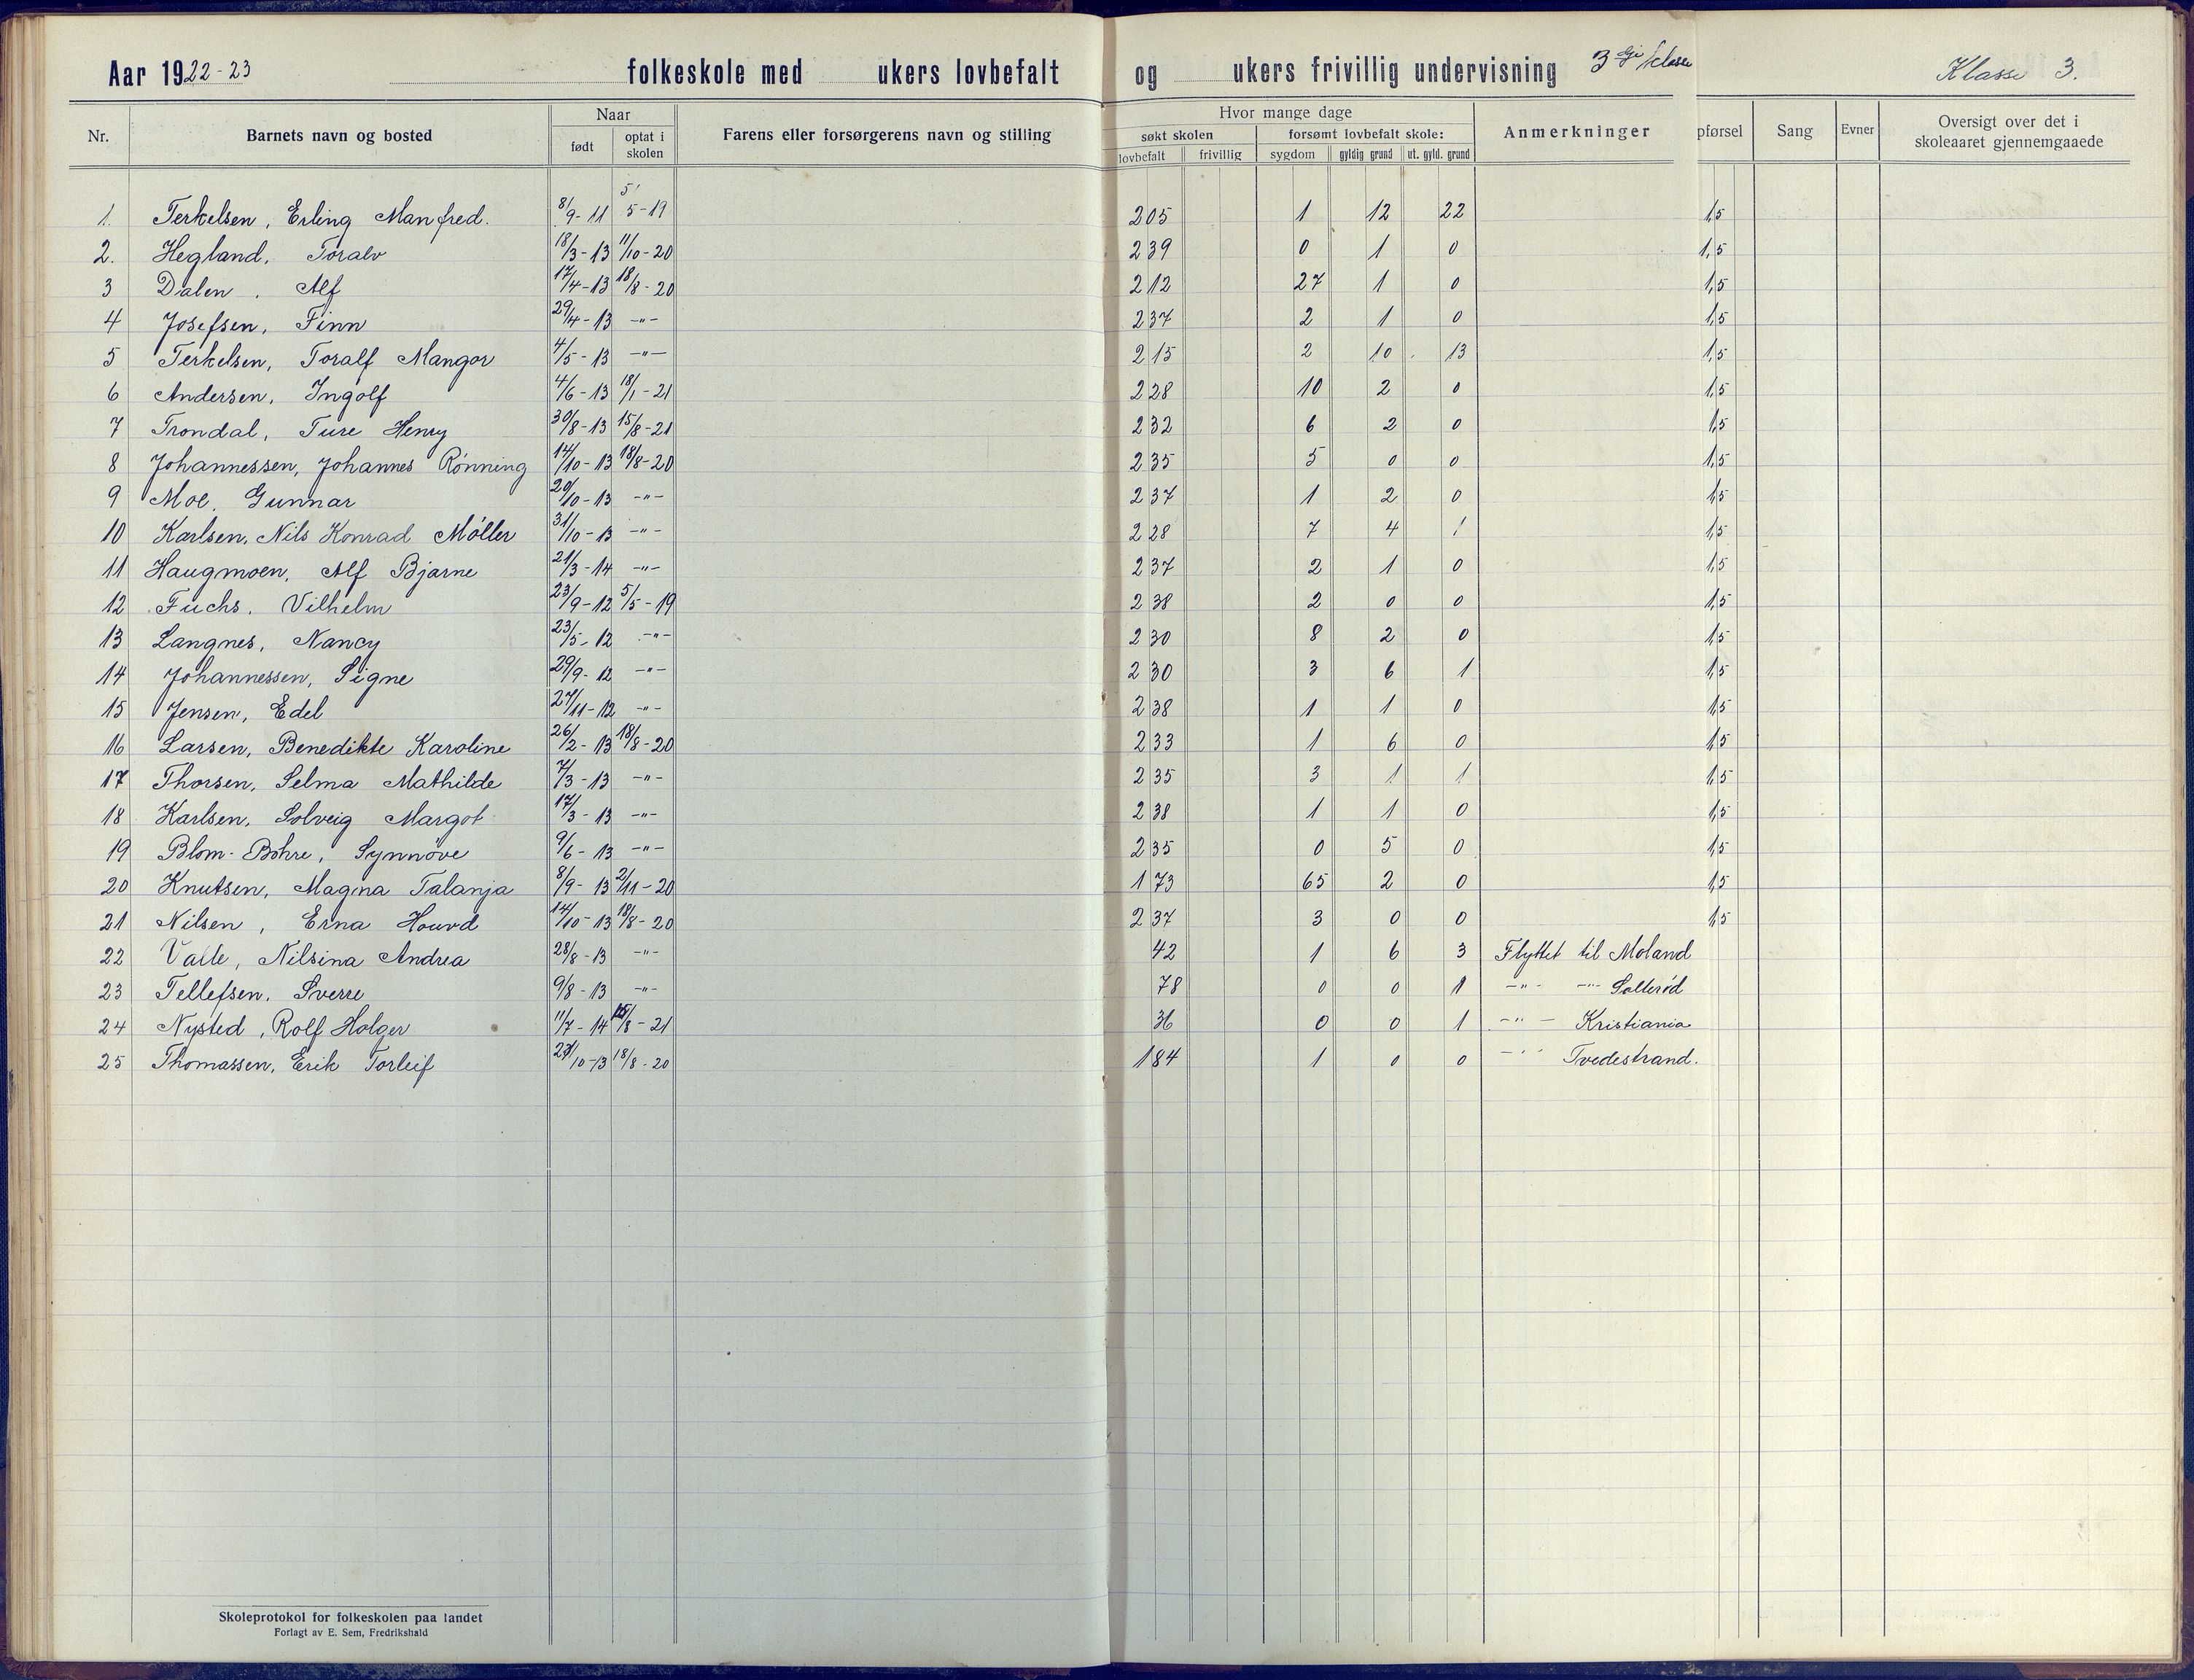 Aar 1922-23 folkeskole med ukers lovbefalt og ukers frivillig undervisning 3dje klasse Klasse 3.
Nr. Barnets navn og bosted Naar Farens eller forsørgerens navn og stilling Hvor mange dage Anmerkninger pførsel Sang Evner Oversigt over det i skoleaaret gjennemgaaede
født optat i skolen søkt skolen forsømt lovbefalt skole:
lovbefalt frivillig sygdom gyldig grund ut. gyld. grund
1. Terkelsen, Erling Manfred. 8/9-11 5/5-19 205 1 12 22 1,5
2. Hegland, Toralv 18/3-13 11/10-20 239 0 1 0 1,5
3 Dalen, Alf 17/4-13 18/8-20 212 27 1 0 1,5
4 Josefsen, Finn 29/4-13 -"- 237 2 1 0 1,5
5 Terkelsen, Toralf Mangor 4/5-13 -"- 215 2 10 13 1,5
6 Andersen, Ingolf 4/6-13 18/1-21 228 10 2 0 1,5
7 Trondal, Ture Henry 30/8-13 15/8-21 232 6 2 0 1,5
8 Johannessen, Johannes Rønning 14/10-13 18/8-20 235 5 0 0 1,5
9 Moe, Gunnar 20/10-13 -"- 237 1 2 0 1,5
10 Karlsen, Nils Konrad Møller 31/10-13 -"- 228 7 4 1 1,5
11 Haugmoen, Alf Bjarne 21/3-14 -"- 237 2 1 0 1,5
12 Fuchs, Vilhelm 23/9-12 5/5-19 238 2 0 0 1,5
13 Langnes, Nancy 23/5-12 -"- 230 8 2 0 1,5
14 Johannessen, Signe 29/9-12 -"- 230 3 6 1 1,5
15 Jensen, Edel 27/11-12 -"- 238 1 1 0 1,5
16 Larsen, Benedikte Karoline 26/2-13 18/8-20 233 1 6 0 1,5
17 Thorsen, Selma Mathilde 7/3-13 -"- 235 3 1 1 1,5
18 Karlsen, Solveig Margot 17/3-13 -"- 238 1 1 0 1,5
19 Blom-Bøhre, Synnøve 9/6-13 -"- 235 0 5 0 1,5
20 Knutsen, Magna Talanja 8/9-13 2/11-20 173 65 2 0 1,5
21 Nilsen, Erna Houvd 14/10-13 18/8-20 237 3 0 0 1,5
22 Valle, Nilsina Andrea 28/8-13 -"- 42 1 6 3 Flyttet til Moland
23 Tellefsen, Sverre 9/8-13 -"- 78 0 0 1 -"- -"- Solterød
24 Nysted, Rolf Holger 11/7-14 15/8-21 36 0 0 1 -"- Kristiania
25 Thomassen, Erik Torleif /10-13 18/8-20 184 1 0 0 -"- Tvedestrand.
Skoleprotokol for folkeskolen paa landet
Forlagt av E. Sem, Fredrikshald